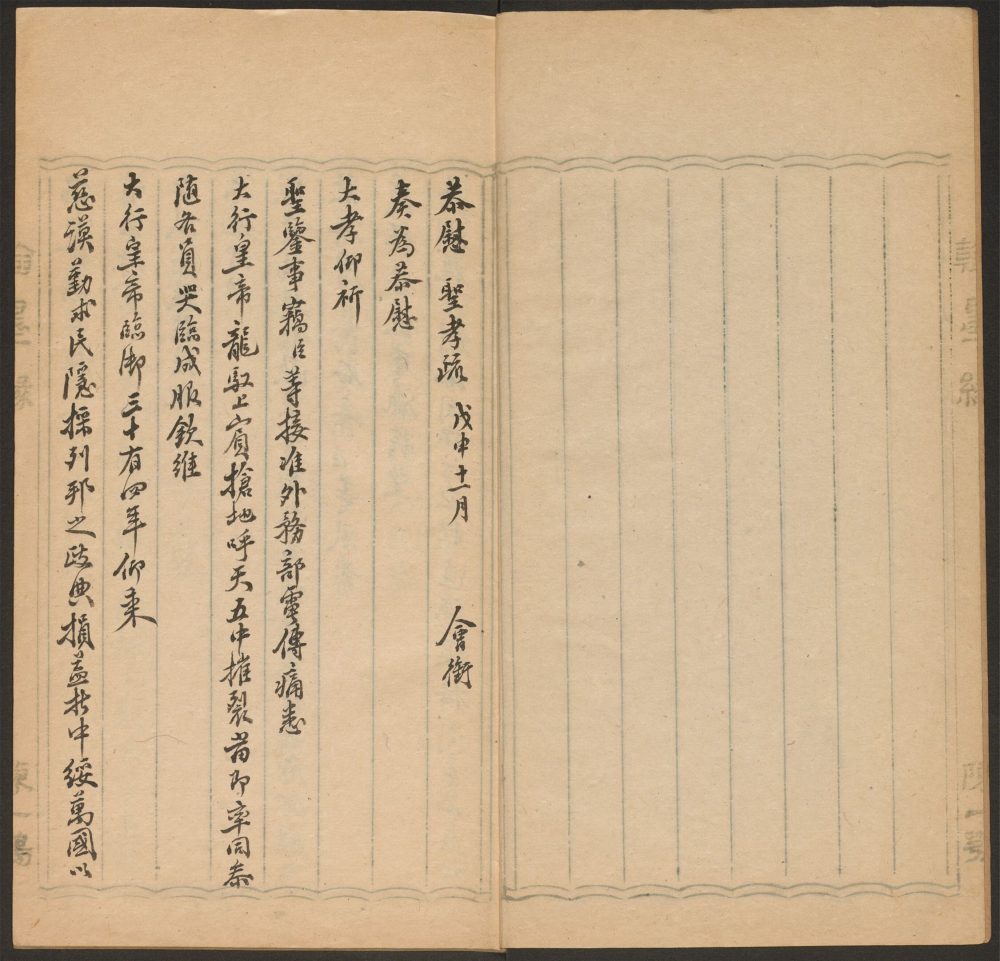 恭慰 聖孝疏 戊申十一月 會銜
奏為恭慰
大孝仰祈
聖鑒事竊臣等接准外務部電傳痛悉
大行皇帝龍馭上賓搶地呼天五中摧裂當即率同參
隨各員哭臨成服欽維
大行皇帝臨御三十有四年仰秉
慈謨勤求民隱採列邦之政典損益折中綏萬國以